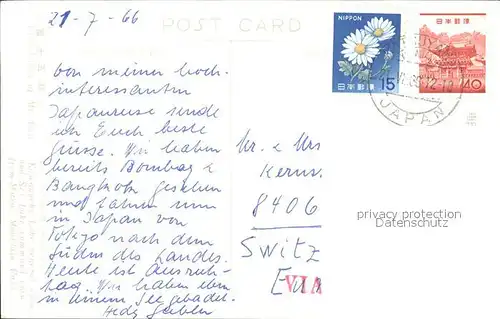 21-7-66
POST CARD
NIPPON
日本郵便
15
日本郵便
40
JAPAN
Von meiner hoch-
interessanten
Japanreise sende
ich Euch beste
Grüsse. Wir haben
bereits Bombay &
Bangkok gesehen
und fahren nun
in Japan von
Tokyo nach dem
Süden des Landes.
Heute ist Ausruh-
tag. Wir haben eben
in einem See gebadet.
Hedy
Mr. & Mrs
Kerns.
8406
Switz
Eur
VIA
privacy protection
Datenschutz